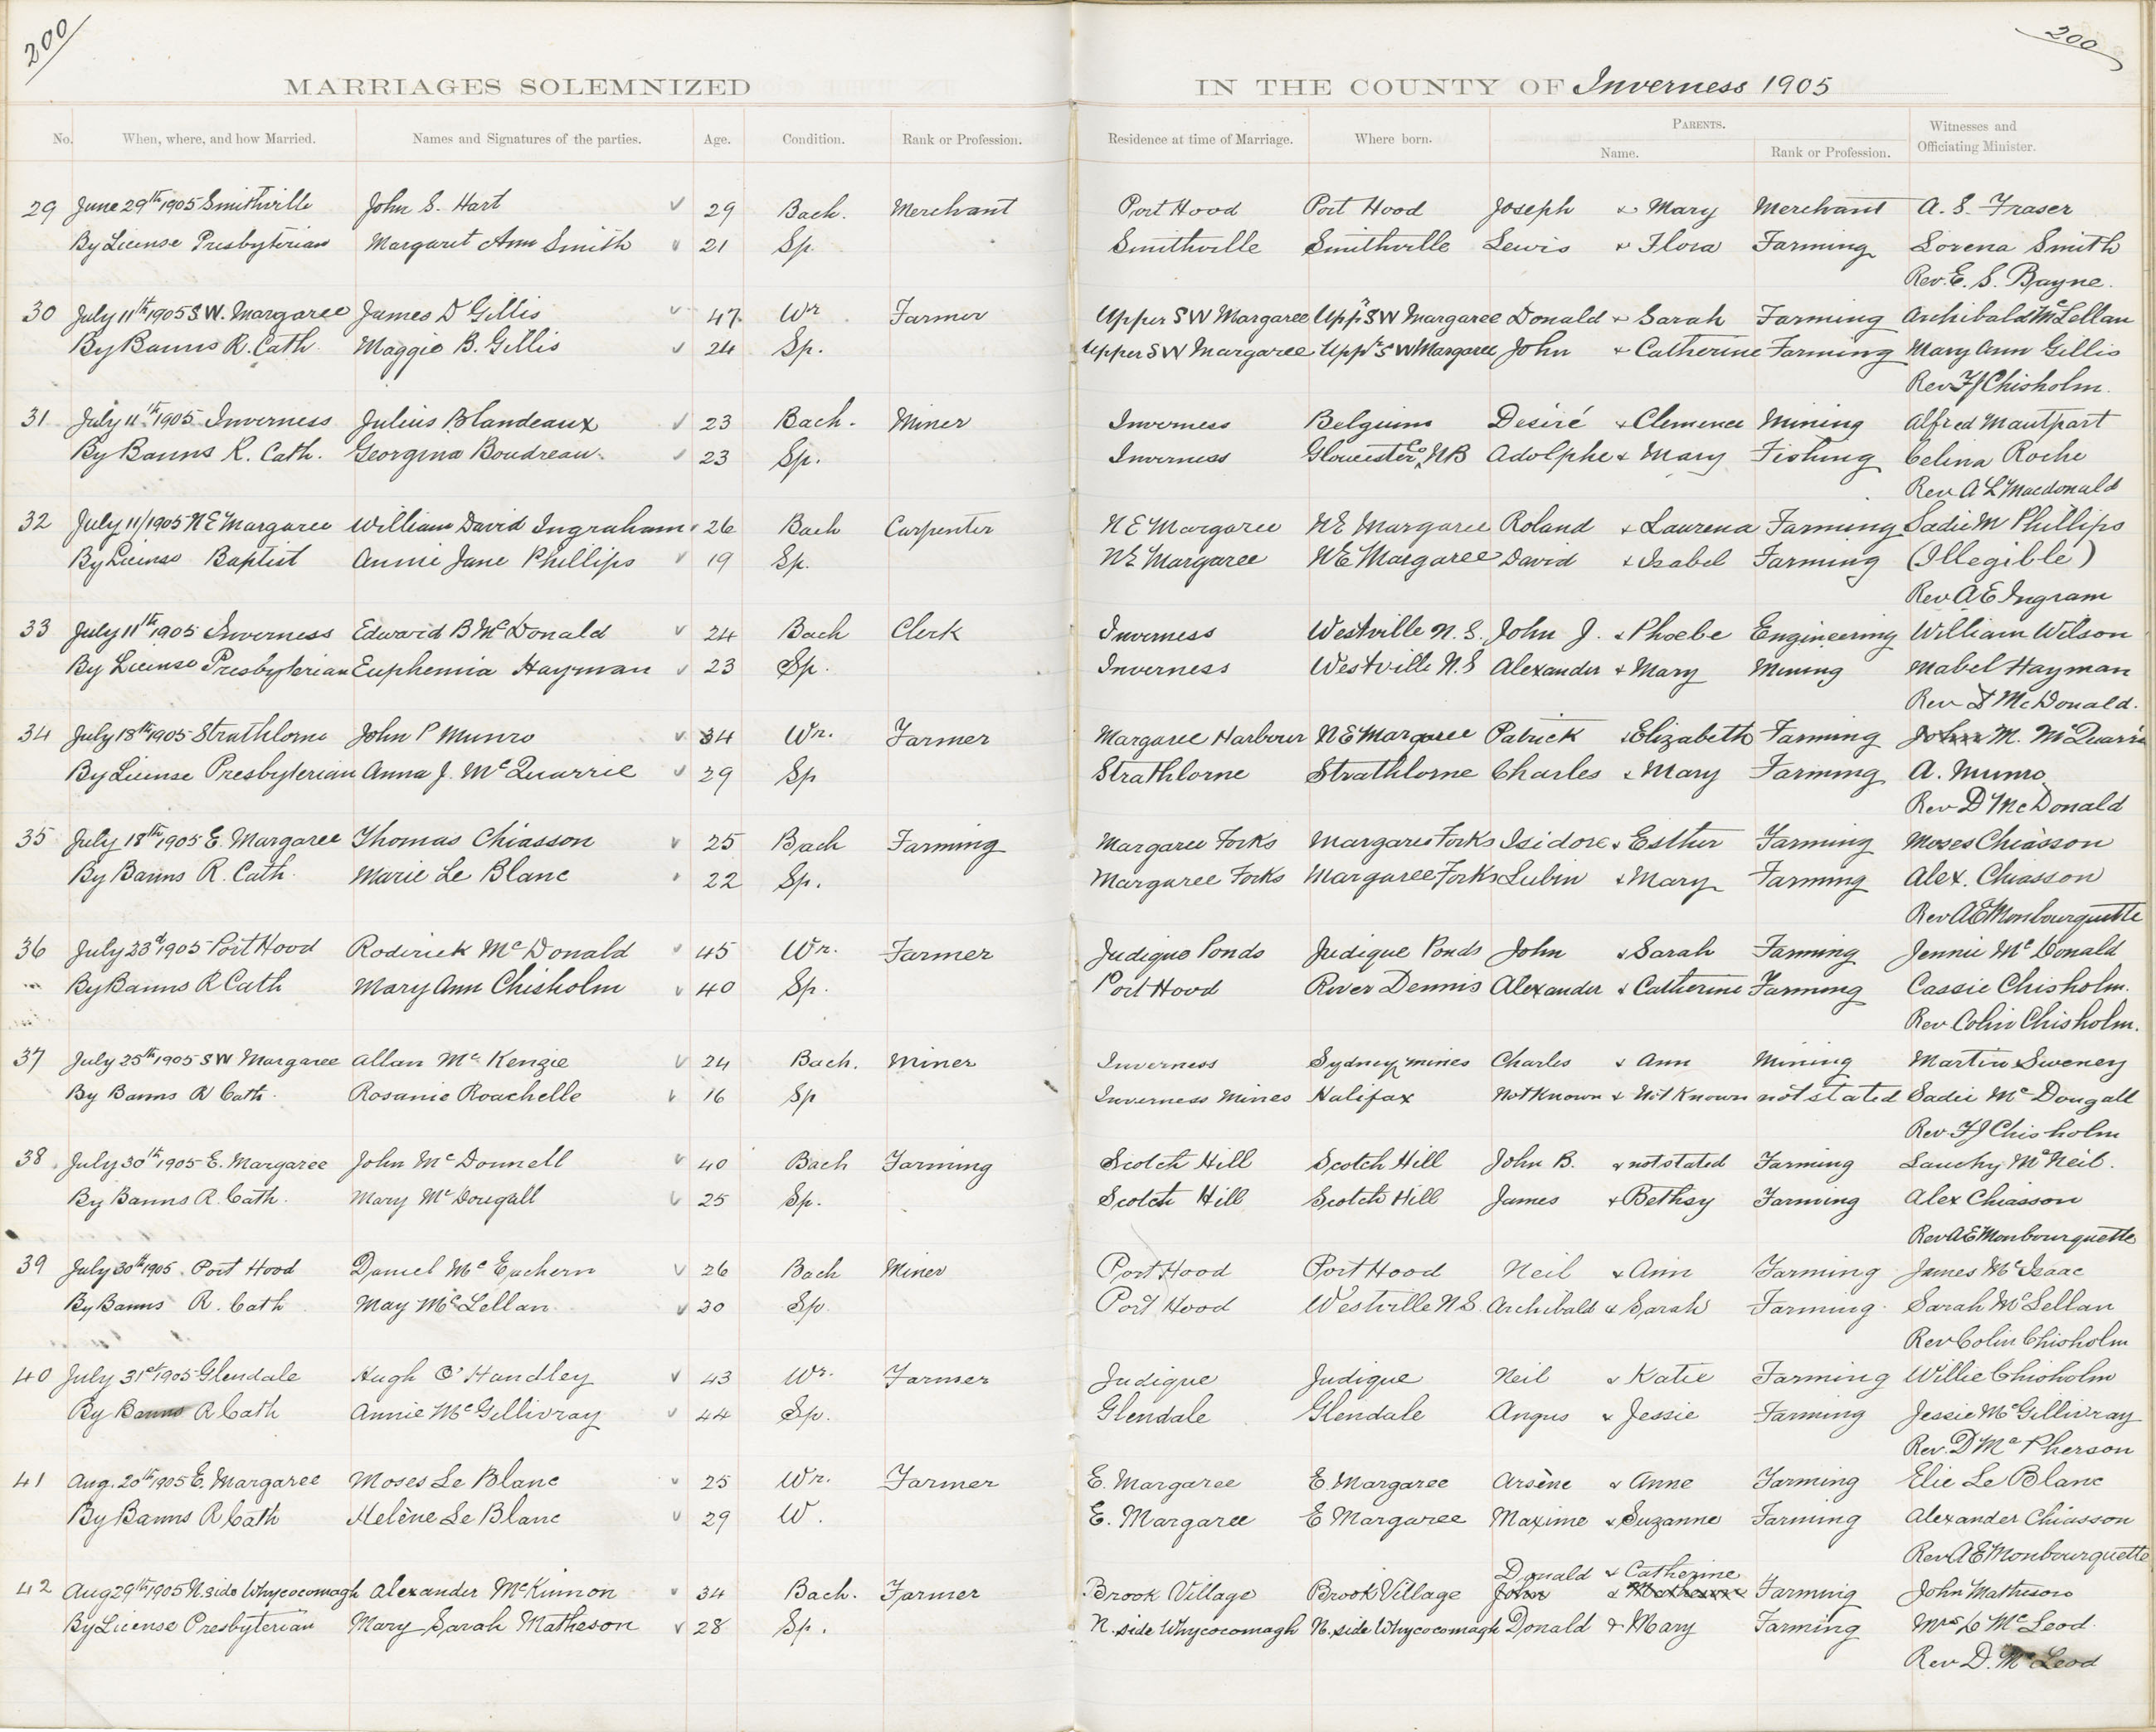 200
200
MARRIAGES SOLEMNIZED IN THE COUNTY OF Inverness 1905
PARENTS.
No. When, where, and how Married. Names and Signatures of the parties. Age. Condition. Rank or Profession. Residence at time of Marriage. Where born. Name. Rank or Profession. Witnesses and Officiating Minister.
29 June 29th 1905 Smithville John S. Hart 29 Bach. Merchant Port Hood Port Hood Joseph & Mary Merchant A. S. Fraser
By License Presbyterian Margaret Ann Smith 21 Sp. Smithville Smithville Lewis & Flora Farming Lorena Smith
Rev. E. S. Bayne.
30 July 11th 1905 S.W. Margaree James D Gillis 47 Wr Farmer Upper S W Margaree Uppr S W Margaree Donald & Sarah Farming Archibald McLellan
By Banns R. Cath. Maggie B. Gillis 24 Sp. Upper S W Margaree Uppr S W Margaree John & Catherine Farming Mary Ann Gillis
Rev F J Chisholm.
31 July 11th 1905 Inverness Julius Blandeaux 23 Bach. Miner Inverness Belgium Desiré & Clemence Mining Alfred Mautpart
By Banns R. Cath. Georgina Boudreau. 23 Sp. Inverness Gloucester Co NB Adolphe & Mary Fishing Celina Roche
Rev A L Macdonald
32 July 11/1905 N E Margaree William David Ingraham 26 Bach Carpenter N E Margaree NE Margaree Roland & Laurena Farming Sadie M Phillips
By License Baptist Annie Jane Phillips 19 Sp. NE Margaree NE Margaree David & Isabel Farming (Illegible)
Rev A E Ingram
33 July 11th 1905 Inverness Edward B McDonald 24 Bach Clerk Inverness Westville N.S. John J. & Phoebe Engineering William Wilson
By License Presbyterian Euphemia Hayman 23 Sp. Inverness Westville N.S Alexander & Mary Mining Mabel Hayman
Rev D McDonald.
34 July 18th 1905 Strathlorne John P Munro 34 Wr. Farmer Margaree Harbour N E Margaree Patrick & Elizabeth Farming John M. McQuarrie
By License Presbyterian Anna J. McQuarrie 29 Sp Strathlorne Strathlorne Charles & Mary Farming A. Munro
Rev D McDonald
35 July 18th 1905 E. Margaree Thomas Chiasson 25 Bach Farming Margaree Forks Margaree Forks Isidore & Esther Farming Moses Chiasson
By Banns R. Cath. Marie Le Blanc 22 Sp. Margaree Forks Margaree Forks Lubin & Mary Farming Alex. Chiasson
Rev A E Monbourquette
36 July 23d 1905 Port Hood Roderick McDonald 45 Wr. Farmer Judique Ponds Judique Ponds John & Sarah Farming Jennie McDonald
By Banns R Cath Mary Ann Chisholm 40 Sp. Port Hood River Dennis Alexander & Catherine Farming Cassie Chisholm.
Rev Colin Chisholm.
37 July 25th 1905 S W Margaree Allan McKenzie 24 Bach. Miner Inverness Sydney mines Charles & Ann Mining Martin Sweney
By Banns R Cath. Rosanie Roachelle 16 Sp Inverness Mines Halifax Not Known & Not Known not stated Sadie McDougall
Rev F J Chisholm
38 July 30th 1905 E. Margaree John McDonnell 40 Bach Farming Scotch Hill Scotch Hill John B. & not stated Farming Lauchy McNeil.
By Banns R. Cath. Mary McDougall 25 Sp. Scotch Hill Scotch Hill James & Bethsy Farming Alex Chiasson
Rev A E Monbourquette
39 July 30th 1905. Port Hood Daniel McEachern 26 Bach Miner Port Hood Port Hood Neil & Ann Farming James McIsaac
By Banns R. Cath May McLellan 30 Sp. Port Hood Westville N.S. Archibald & Sarah Farming Sarah McLellan
Rev Colin Chisholm
40 July 31st 1905 Glendale Hugh O'Handley 43 Wr. Farmer Judique Judique Neil & Katie Farming Willie Chisholm
By Banns R Cath Annie McGillivray 44 Sp. Glendale Glendale Angus & Jessie Farming Jessie McGillivray
Rev. D McPherson
41 Aug. 20th 1905 E. Margaree Moses Le Blanc 25 Wr. Farmer E. Margaree E. Margaree Arsène & Anne Farming Elie Le Blanc
By Banns R Cath Helène Le Blanc 29 W. E. Margaree E Margaree Maxime & Suzanne Farming Alexander Chiasson
Rev A E Monbourquette
Donald & Catherine
42 Aug 29th 1905 N. side Whycocomagh Alexander McKinnon 34 Bach. Farmer Brook Village Brook Village John & Farming John Matheson
By License Presbyterian Mary Sarah Matheson 28 Sp. N. side Whycocomagh N. side Whycocomagh Donald & Mary Farming Mrs C McLeod.
Rev D. McLeod